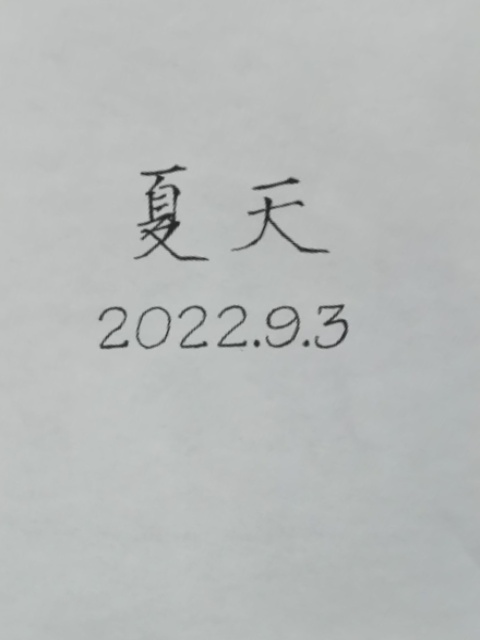 夏天
2022.9.3